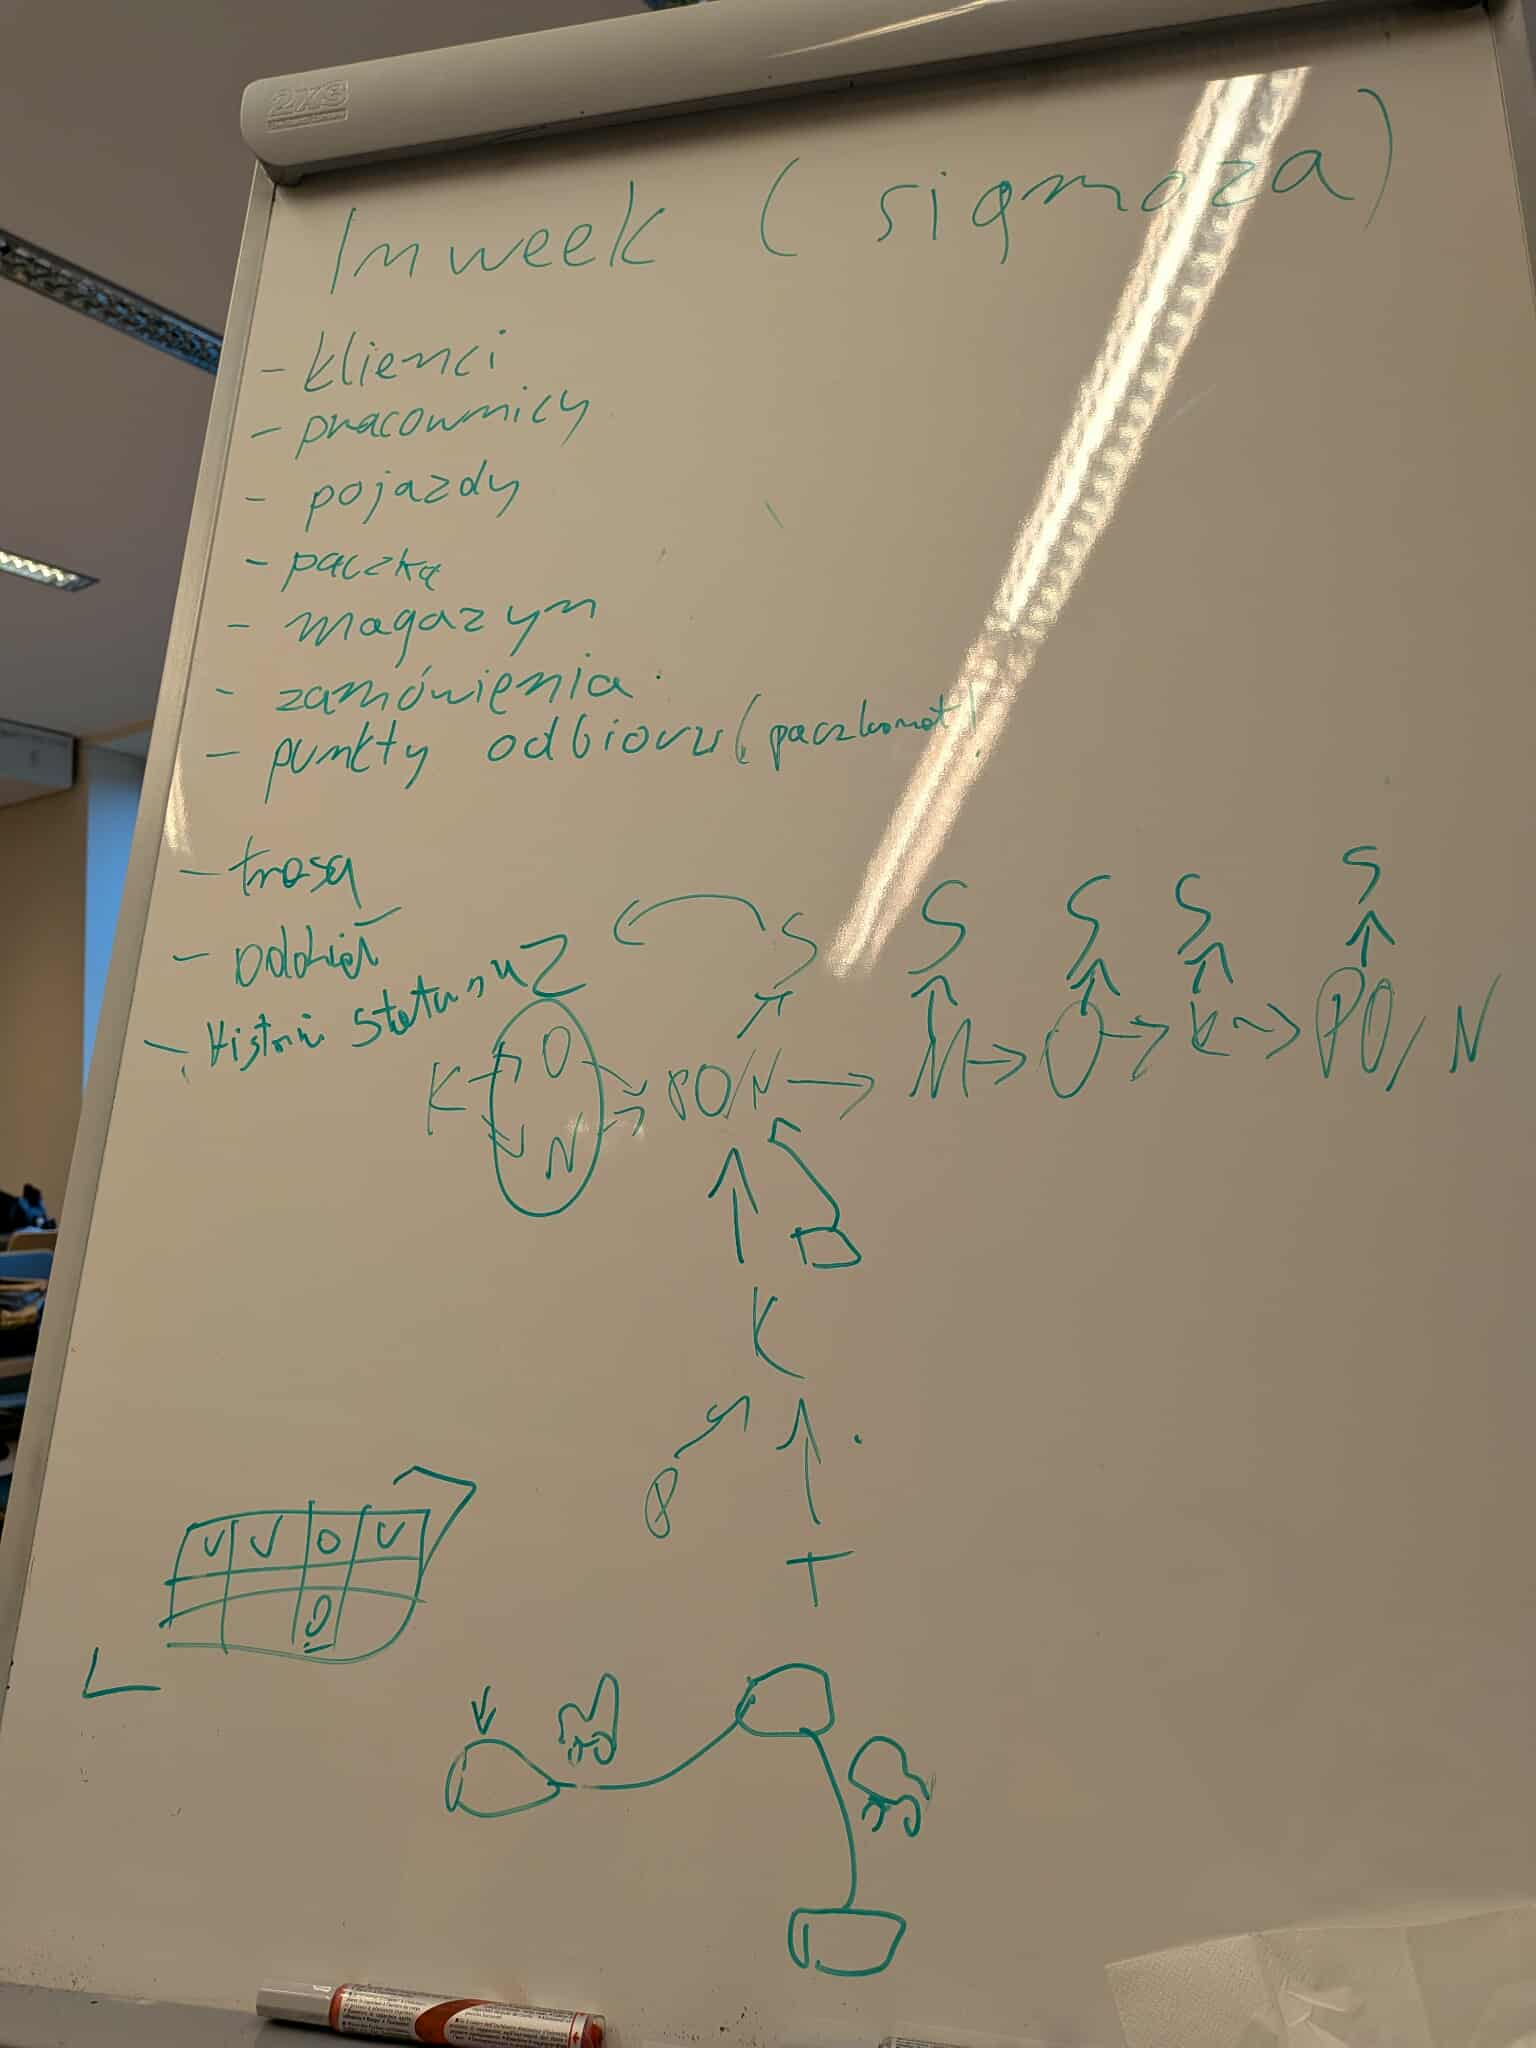 2x3
In week (sigmoza)
- klienci
- pracownicy
- pojazdy
- paczka
- magazyn
- zamówienia
- punkty odbioru (paczkomat)
- trasa
- oddział
- Historia statusu
Z
S S S S S
K O N PO/N M O K PO/N
K
P
T
V V O V
O
L